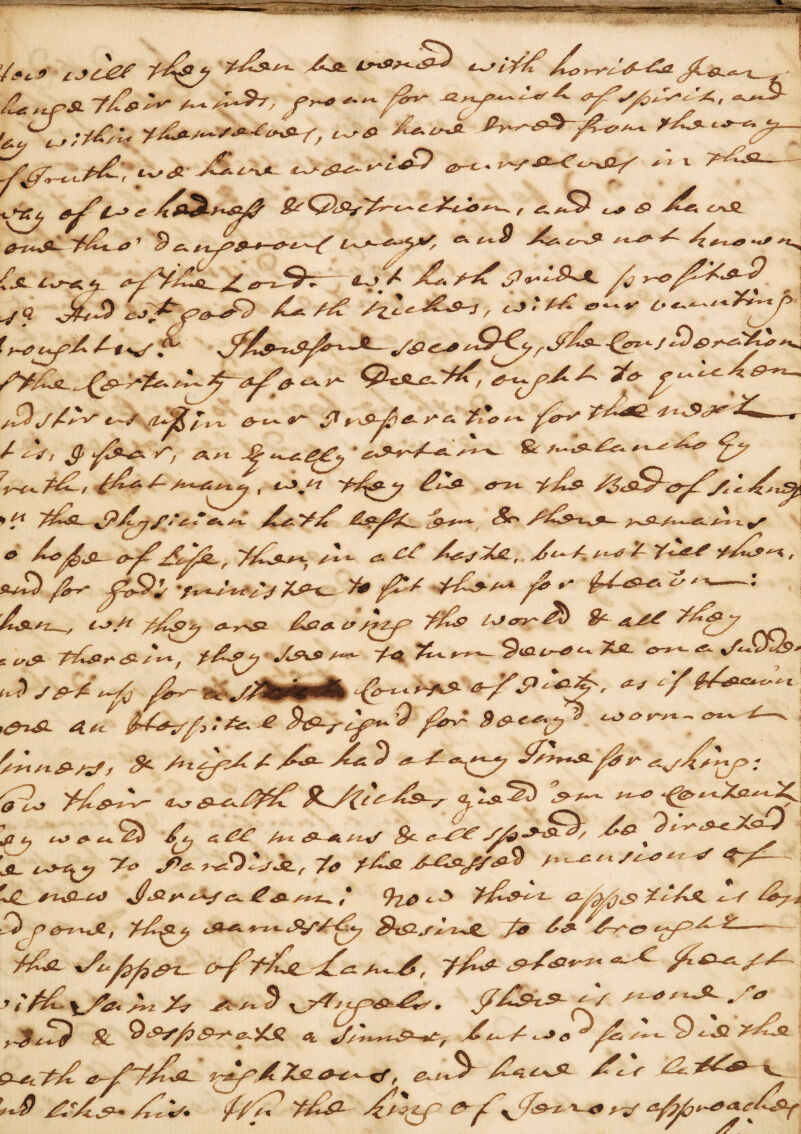 How will they then be vexed with horrible Fear,
hange their minds, groan for anguish of spirit, and
ay within themselves, we have Erred from the way
f Truth, we have wearied ourselves in the
way of wickedness & Destruction, and we have
one thro' dangerous ways, and have not known
he way of the Lord. wt hath Pride profited
us? And wt good hath Riches, with our vaunting
brought us? Therefore secondly, The Consideration
f the Certainty of our Death, ought to quicken
nd stir us up in our Preparation for the next.
t is, I fear, an Equally certain & melancholy
ruth, that many, wn they lie on the Bed of sickness
wn the Physician hath left 'em, & there remains
o hope of Life, then, in all haste, but not till then,
end for God's minister to fit them for Heav'n:
hen, wn they are leaving the world & all they
ave therein, they seem to turn devoute on a sudden
nd set up for a Course of Piety, as if Heav'n
were an Hospital design'd for decay'd worn-out
inners, & might be had at any Time for asking:
ow their wealth & Riches yield 'em no Content
ey would by all means & all speed, be directed
e way to Paradise, to the blessed mansions of
he new Jerusalem; now their appetite is los
d gone, they earnestly desire to be brought
the Supper of the Lamb, the eternal Feast
with Saints and Angels. There is none so
roud & desperate a Sinner, but wod fain die the
eath of the righteous, and have his latter
nd like his. Wn the king of Terrors approaches